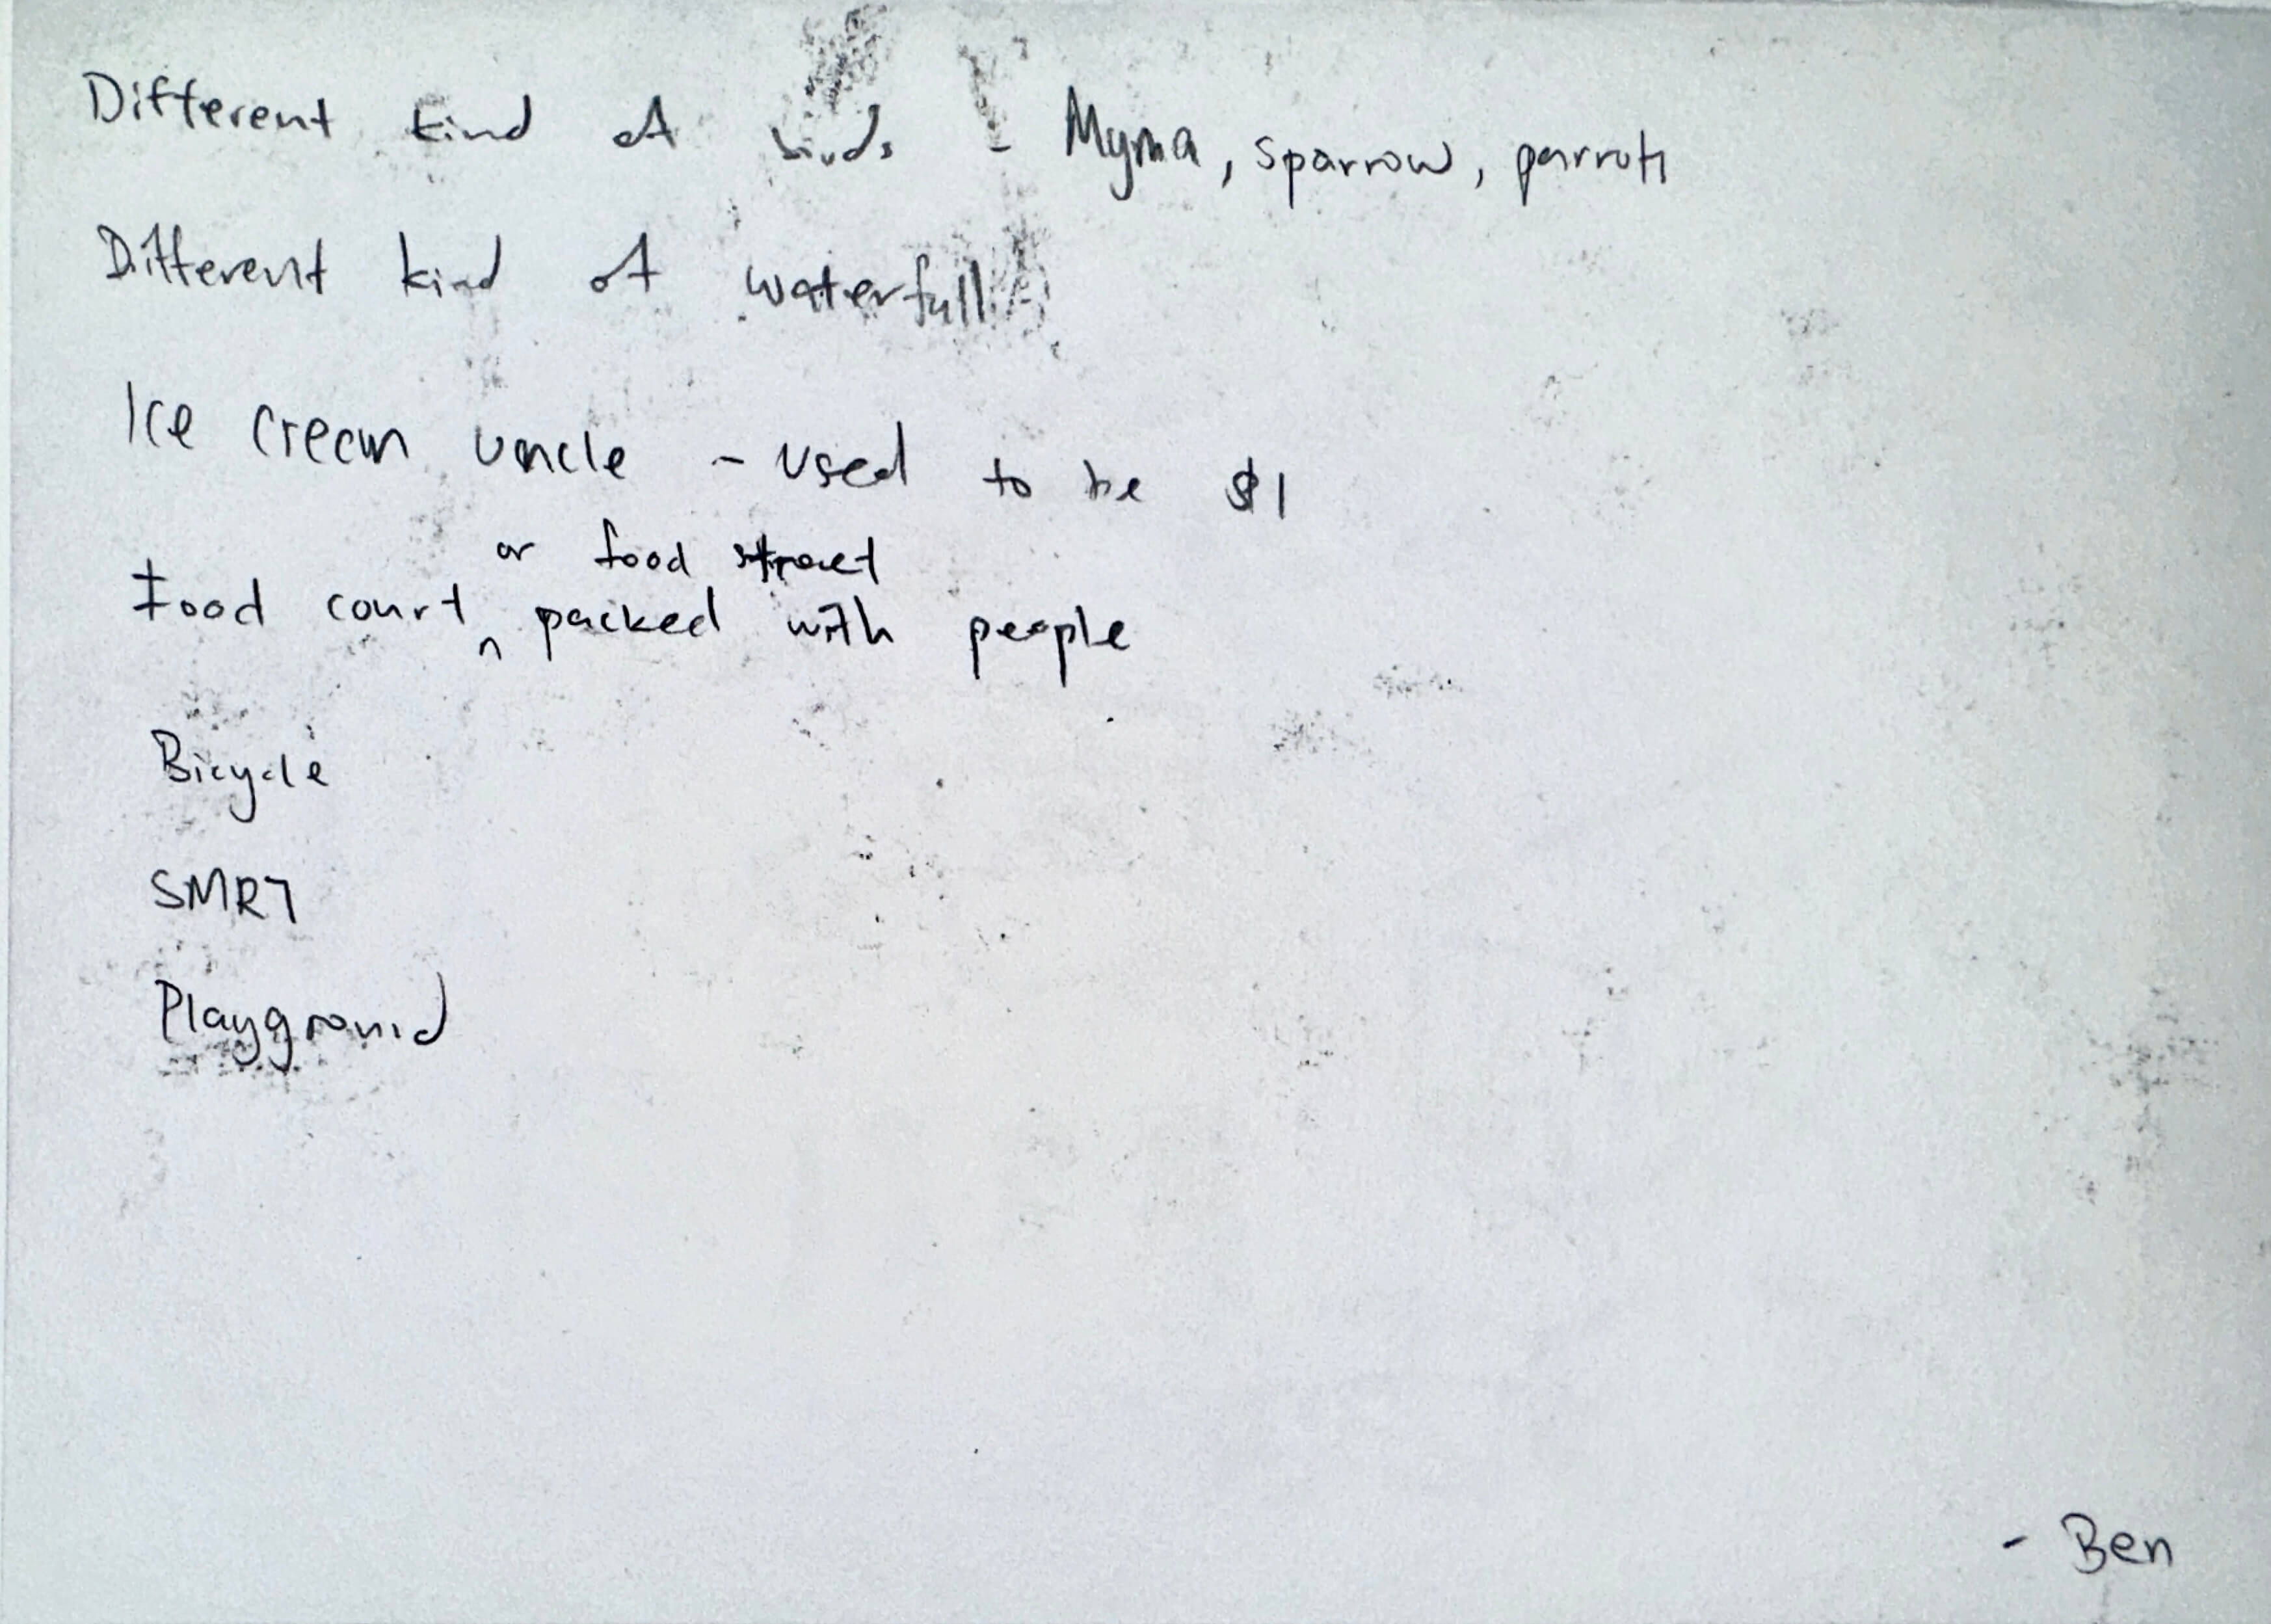 Different kind of birds - Myna, sparrow, parrots
Different kind of waterfall
Ice cream uncle - used to be $1
or food street
Food court ^ packed with people
Bicycle
SMRT
Playground
- Ben